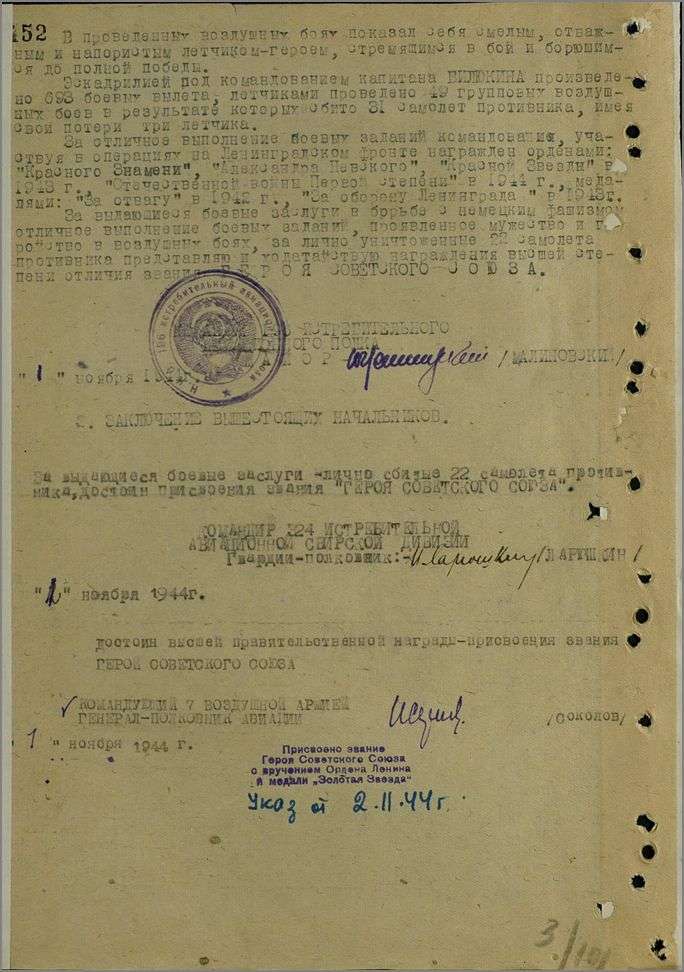 152
В проведенных воздушных боях показал себя смелым, отваж-
ным и напористым летчиком-героем, стремящимся в бой и борющим-
ся до полной победы.
Эскадрилией под командованием капитана БИЛЮКИНА произведе-
но 693 боевых вылета, летчиками проведено 49 групповых воздуш-
ных боев в результате которых сбито 31 самолет противника, имея
свои потери три летчика.
За отличное выполнение боевых заданий командования, уча-
ствуя в операциях на Ленинградском фронте награжден орденами:
"Красного Знамени", "Александра Невского", "Красной Звезды" в
1943 г., "Отечественной войны Первой степени" в 1944 г., меда-
лями: "За отвагу" в 1942 г., "За оборону Ленинграда " в 1943г.
За выдающиеся боевые заслуги в борьбе с немецким фашизмом
отличное выполнение боевых заданий, проявленное мужество и г
ройство в воздушных боях, за лично уничтоженные 22 самолета
противника представляю и ходатайствую награждения высшей сте-
пени отличия звания Г Е Р О Я СОВЕТСКОГО С О Ю З А.
196 истребительный авиационный
ИСТРЕБИТЕЛЬНОГО
ПОЛКА
О Р /МАЛИНОВСКИЙ/
" 1 " ноября
3. ЗАКЛЮЧЕНИЕ ВЫШЕСТОЯЩИХ НАЧАЛЬНИКОВ.
За выдающиеся боевые заслуги -лично сбитые 22 самолета против-
ника, достоин присвоения звания "ГЕРОЯ СОВЕТСКОГО СОЮЗА".
КОМАНДИР 324 ИСТРЕБИТЕЛЬНОЙ
АВИАЦИОННОЙ СВИРСКОЙ ДИВИЗИИ
Гвардии-полковник:- /ЛАРЮШКИН/
" " ноября 1944г.
достоин высшей правительственной награды-присвоения звания
ГЕРОЙ СОВЕТСКОГО СОЮЗА
КОМАНДУЮЩИЙ 7 ВОЗДУШНОЙ АРМИЕЙ
ГЕНЕРАЛ-ПОЛКОВНИК АВИАЦИИ
/Соколов/
1 " ноября 1944 г.
Присвоено звание
Героя Советского Союза
с вручением Ордена Ленина
и медали „Золотая Звезда"
Указ от 2.11.44г.